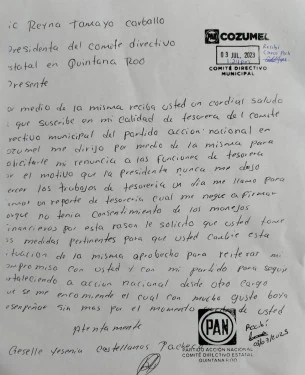 ic Reyna Tamayo Carballo
Presidenta del Comite directivo
statal en Quintana Roo
Presente
COZUMEL
03 JUL. 2023
COMITÉ DIRECTIVO
MUNICIPAL
or medio de la misma reciba usted un cordial saludo
que suscribe en mi calidad de tesorera del comite
rectivo municipal del partido accion nacional en
ozumel me dirijo por medio de la misma para
olicitarle mi renuncia a las funciones de tesorera
el motivo que la presidenta nunca me dejo
ercer los trabajos de tesoreria un dia me llamo para
un reporte de tesoreria cual me negue a firmar
que no tenia consentimiento de los manejos
inancieros por esta rason le solicito que usted tome
s medidas pertinentes para que usted cambie esta
ituacion de la misma aprobecho para reiterar mi
mpromiso con usted y con mi partido para seguir
taleciendo a accion nacional desde otro cargo
ue se me encomiende el cual con mucho gusto boy a
esempeñar sin mas por el momento de usted
Atentamente
Geselle Yesenia Castellanos Pacheco
PAN
PARTIDO ACCION NACIONAL
COMITÉ DIRECTIVO ESTATAL
QUINTANA ROO
Recibi
03/07/2023